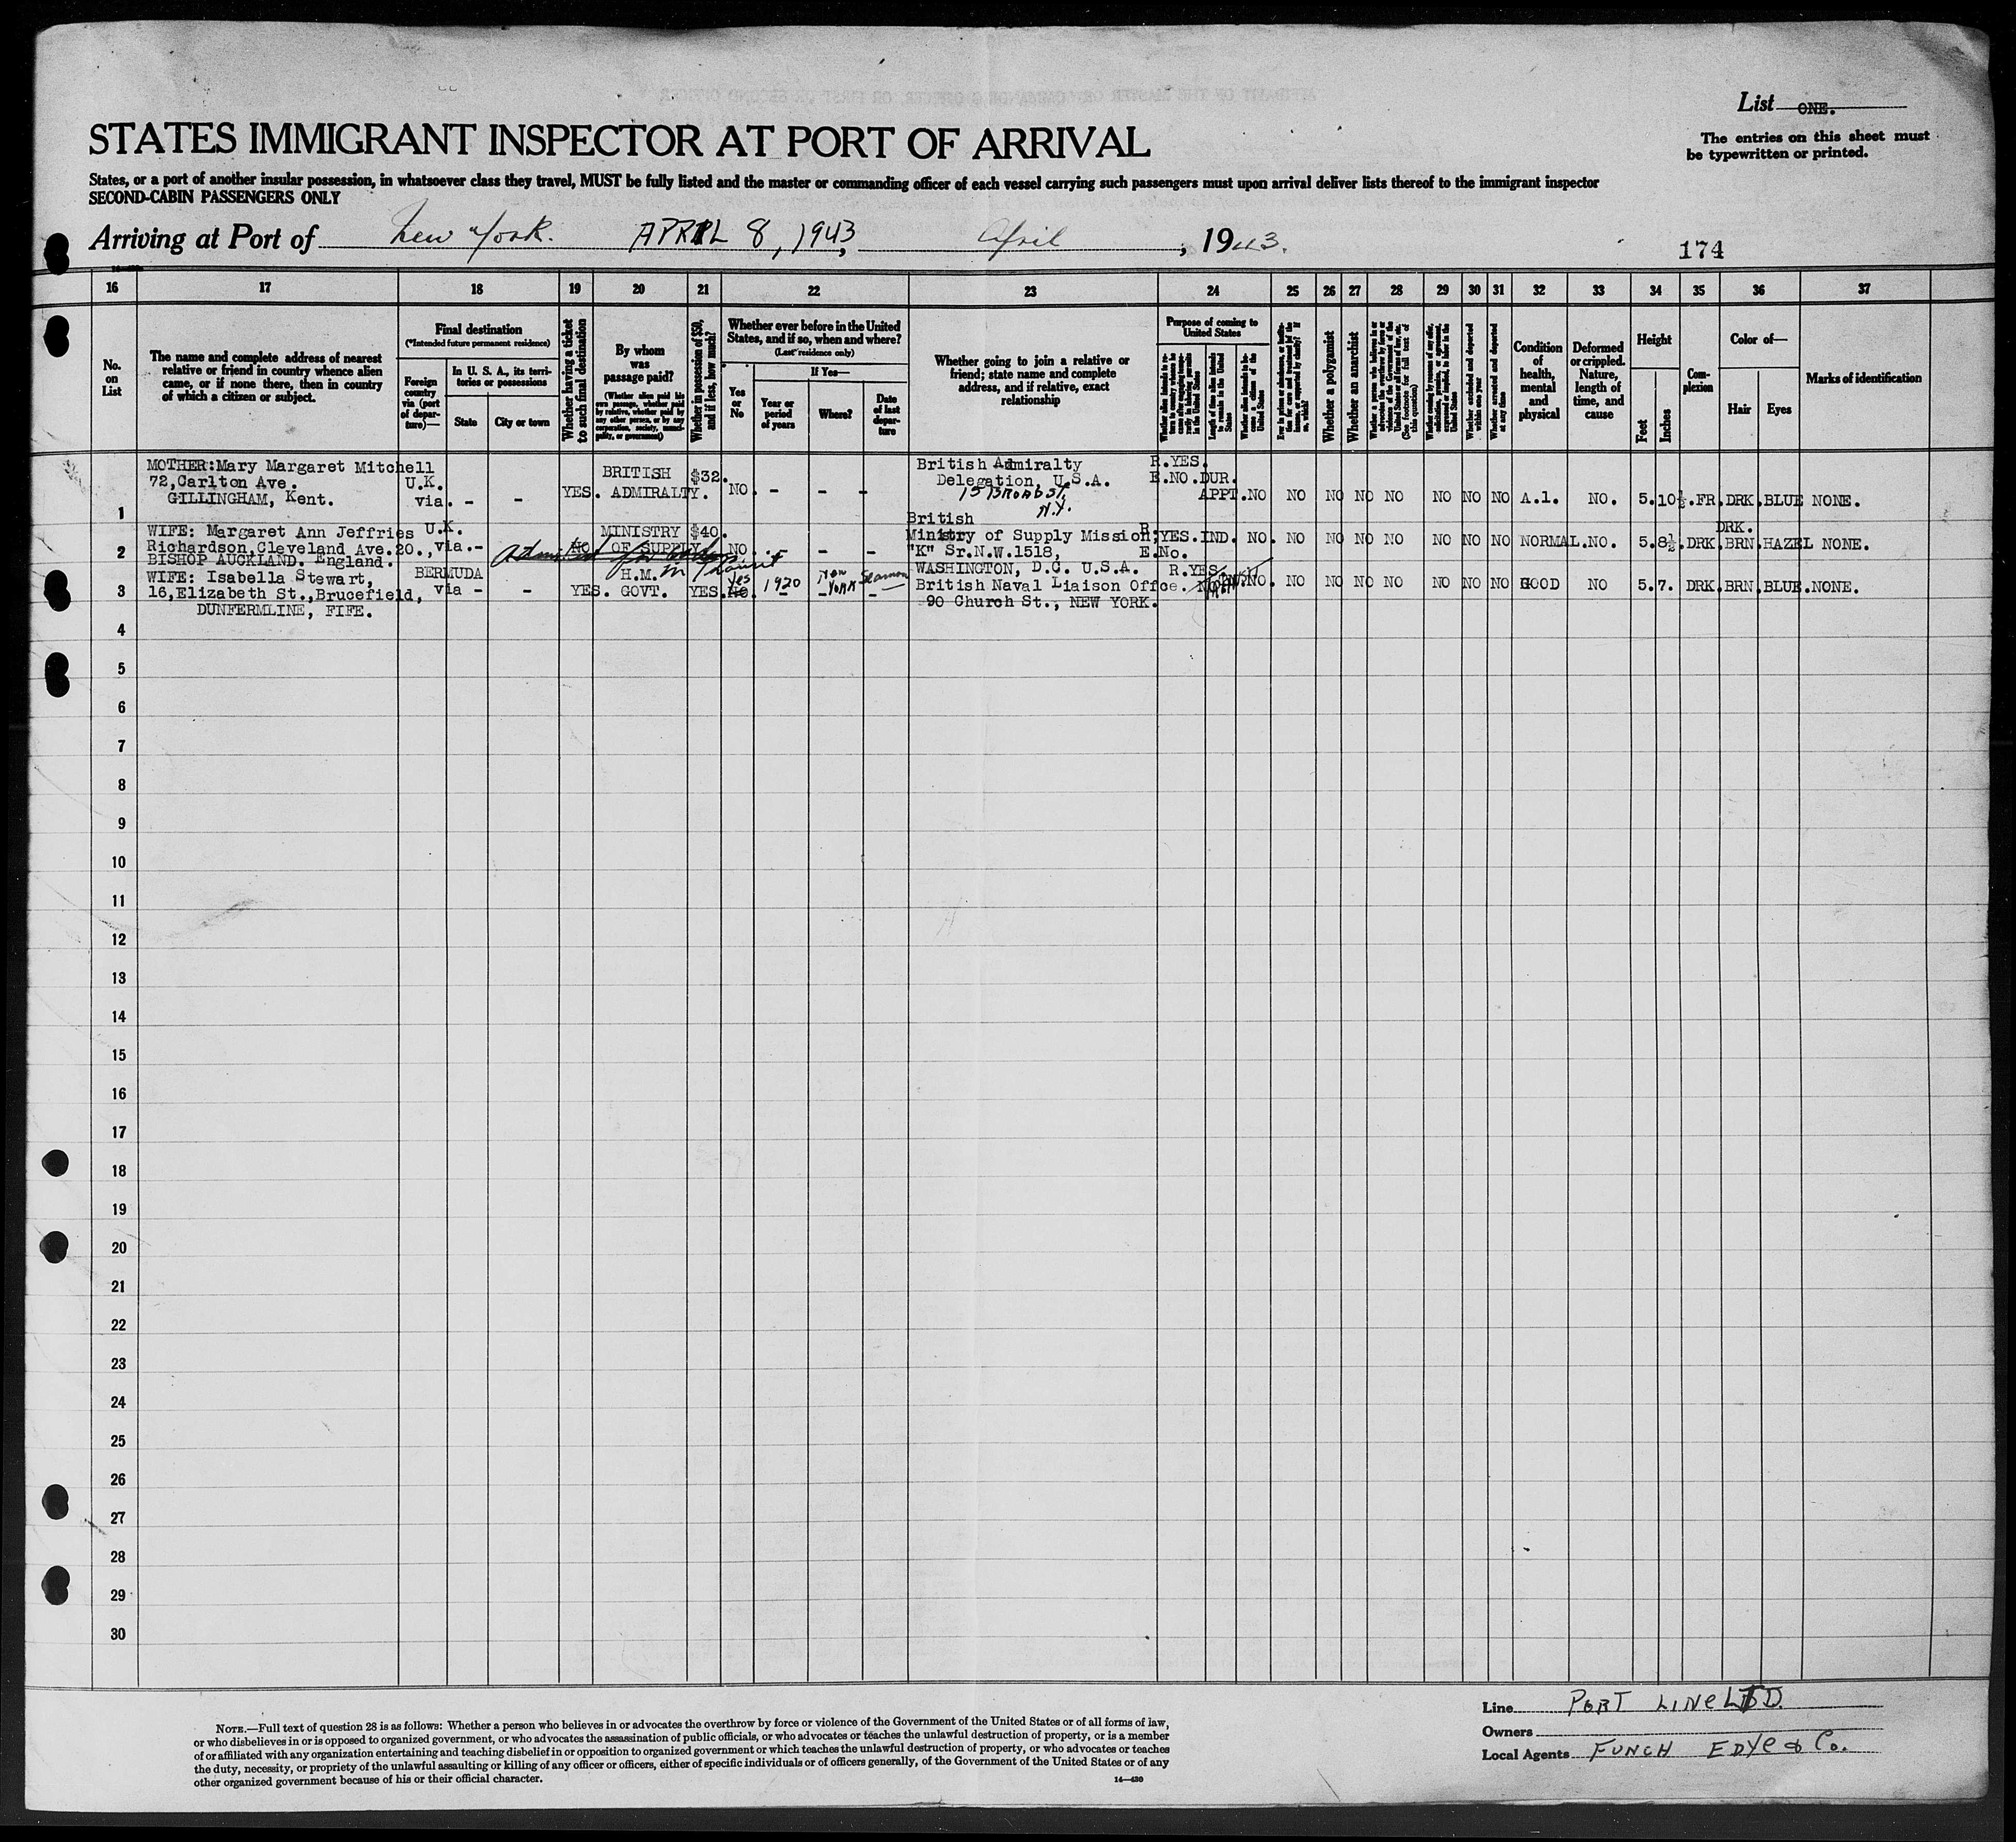 List ONE.
The entries on this sheet must
be typewritten or printed.
STATES IMMIGRANT INSPECTOR AT PORT OF ARRIVAL
States, or a port of another insular possession, in whatsoever class they travel, MUST be fully listed and the master or commanding officer of each vessel carrying such passengers must upon arrival deliver lists thereof to the immigrant inspector
SECOND-CABIN PASSENGERS ONLY
Arriving at Port of New York. APRIL 8, 1943, April, 1943.
174
16 17 18 19 20 21 22 23 24 25 26 27 28 29 30 31 32 33 34 35 36 37
No.
on
List
The name and complete address of nearest
relative or friend in country whence alien
came, or if none there, then in country
of which a citizen or subject.
Final destination
(*Intended future permanent residence)
Foreign
country
via (port
of depar-
ture)—
In U. S. A., its terri-
tories or possessions
State
City or town
Whether having a ticket
to such final destination
By whom
was
passage paid?
(Whether alien paid his
own passage, whether paid
by relative, whether paid by
any other person, or by any
corporation, society, munici-
pality, or government)
Whether in possession of $50,
and if less, how much?
Whether ever before in the United
States, and if so, when and where?
(Last residence only)
Yes
or
No
If Yes—
Year or
period
of years
Where?
Date
of last
depar-
ture
Whether going to join a relative or
friend; state name and complete
address, and if relative, exact
relationship
Purpose of coming to
United States
Length of time alien intends
to remain in the United
States
Whether a polygamist
Whether an anarchist
Whether arrested and deported
at any time
Condition
of
health,
mental
and
physical
Deformed
or crippled.
Nature,
length of
time, and
cause
Height
Feet
Inches
Com-
plexion
Color of—
Hair
Eyes
Marks of identification
MOTHER:Mary Margaret Mitchell
72,Carlton Ave.
GILLINGHAM, Kent.
U.K.
via. - -
YES.
BRITISH
ADMIRALTY.
$32.
NO. - - -
British Admiralty
Delegation, U.S.A.
15 Broad St,
N.Y.
R.YES.
E.NO.DUR.
APPT.NO NO NO NO NO NO NO NO A.1. NO. 5.10½.FR.DRK.BLUE NONE.
1
WIFE: Margaret Ann Jeffries
Richardson,Cleveland Ave.20.,
BISHOP AUCKLAND. England.
U.K.
via.-
NO
MINISTRY
OF SUPPLY
$40.
NO. - - -
in Transit
British
Ministry of Supply Mission,
"K" Sr.N.W.1518,
WASHINGTON, D.C. U.S.A.
R.
YES.IND.
E.No.
NO. NO NO NO NO NO NO NO NORMAL.NO. 5.8½.DRK.
DRK.
BRN.HAZEL NONE.
2
WIFE: Isabella Stewart,
16,Elizabeth St.,Brucefield,
DUNFERMLINE, FIFE.
BERMUDA
via - -
YES.
H.M.
GOVT.
YES.
Yes
NO.
1920
New
York
Seaman
British Naval Liaison Office.
90 Church St., NEW YORK.
R.YES
NO. NO NO NO NO NO NO NO GOOD NO 5.7. DRK.BRN.BLUE.NONE.
3
4
5
6
7
8
9
10
11
12
13
14
15
16
17
18
19
20
21
22
23
24
25
26
27
28
29
30
NOTE.—Full text of question 28 is as follows: Whether a person who believes in or advocates the overthrow by force or violence of the Government of the United States or of all forms of law,
or who disbelieves in or is opposed to organized government, or who advocates the assassination of public officials, or who advocates or teaches the unlawful destruction of property, or is a member
of or affiliated with any organization entertaining and teaching disbelief in or opposition to organized government or which teaches the unlawful destruction of property, or who advocates or teaches
the duty, necessity, or propriety of the unlawful assaulting or killing of any officer or officers, either of specific individuals or of officers generally, of the Government of the United States or of any
other organized government because of his or their official character.
14—430
Line PORT LINE LTD.
Owners
Local Agents FUNCH EDYE & Co.